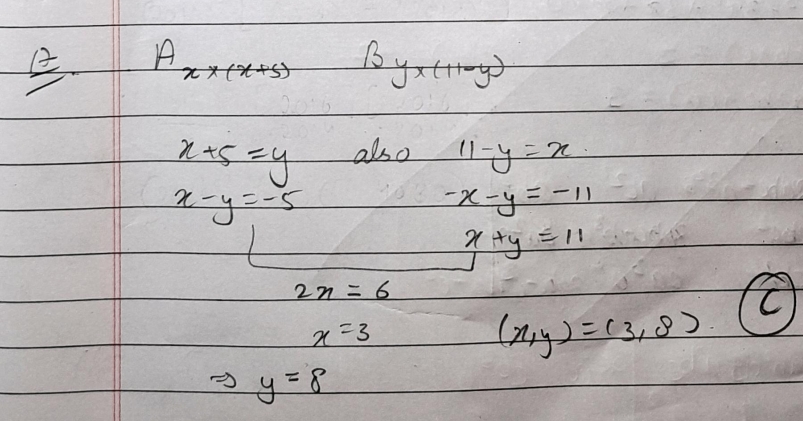 A. A x×(x+5) B y×(11-y)
x+5=y also 11-y=x.
x-y=-5 -x-y=-11
x+y=11
2x=6
x=3 (x,y)=(3,8). C
⇒ y=8